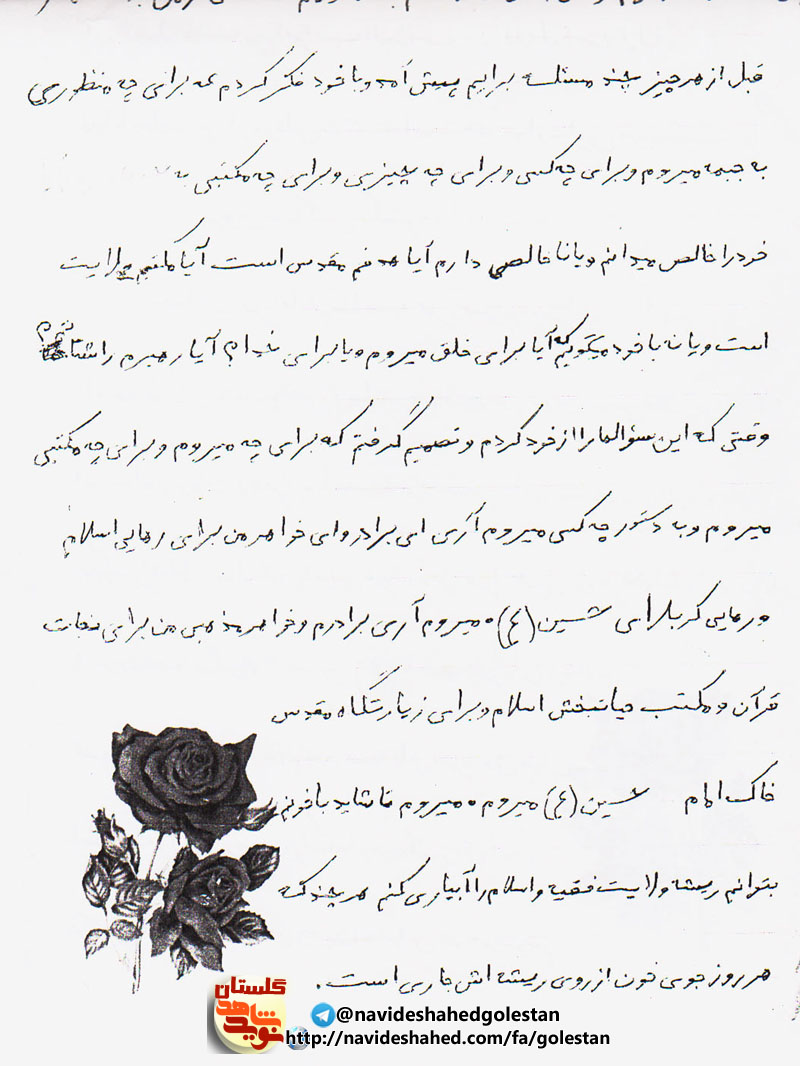 قبل از هر چیز چند مسئله برایم پیش آمد و با خود فکر کردم که برای چه منظوری
به جبهه میروم و برای چه کسی و برای چه چیزی و برای چه مکتبی به
خود را خالص میدانم و یا ناخالصی دارم آیا هدفم مقدس است آیا مکتبم ولایت
است و یا نه با خود میگویم که آیا برای خلق میروم و یا برای خدا آیا رهبرم را شناختم
وقتی که این سؤالها را از خود کردم و تصمیم گرفتم که برای چه میروم و برای چه مکتبی
میروم و به دستور چه کسی میروم آری ای برادر و ای خواهر من برای رهایی اسلام
و رهایی کربلای حسین (ع) میروم آری برادرم و خواهر مذهبی من برای نجات
قرآن و مکتب حیاتبخش اسلام و برای زیارتگاه مقدس
خاک امام حسین (ع) میروم میروم تا شاید با خونم
بتوانم ریشه ولایت فقیه و اسلام را آبیاری کنم هر چند که
هر روز جوی خون از روی ریشه اش جاری است.
گلستان
نوید شاهد
@navideshahedgolestan
http://navideshahed.com/fa/golestan